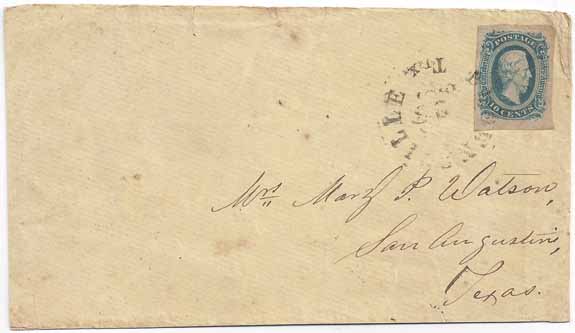 POSTAGE
10 CENTS
LLE TX
Mrs. Mary P. Watson,
San Augustine,
Texas.